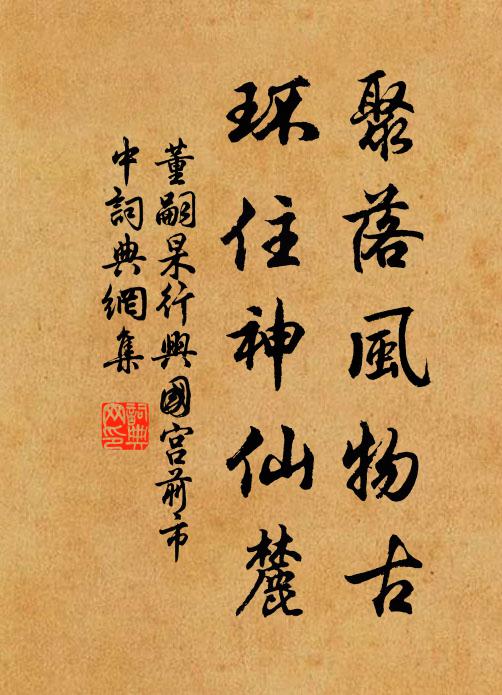 聚落風物古
环住神仙麓
董嗣杲行興國宮前市
中詞典網集
詞典网印